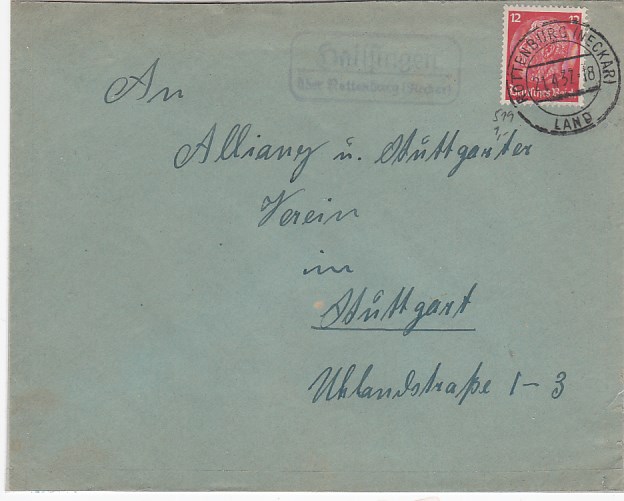 Hailfingen
über Rottenburg (Neckar)
12 12
Deutsches Reich
ROTTENBURG (NECKAR)
4.37.-18
LAND
519
1,-
An
Allianz u. Stuttgarter
Verein
in
Stuttgart
Uhlandstraße 1-3